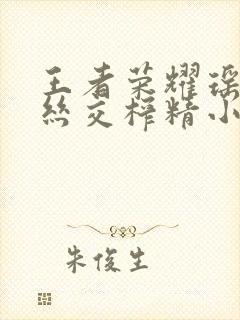 王者荣耀瑶
丝交榨精小
朱俊生